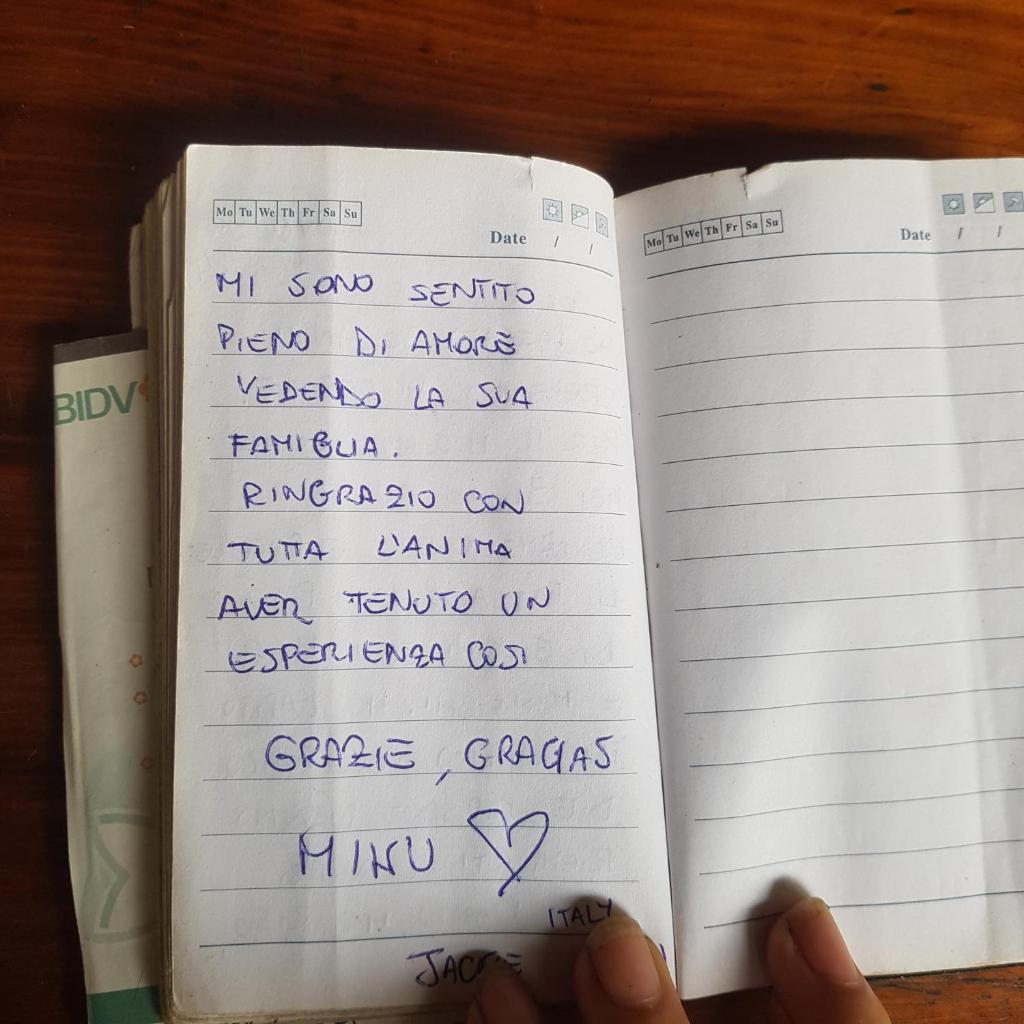 Mo Tu We Th Fr Sa Su
Date / /
MI SONO SENTITO
PIENO DI AMORE
VEDENDO LA SUA
FAMIGLIA.
RINGRAZIO CON
TUTTA L'ANIMA
AVER TENUTO UN
ESPERIENZA COSI
GRAZIE, GRACIAS
MINU
ITALY
Mo Tu We Th Fr Sa Su
Date / /
BIDV